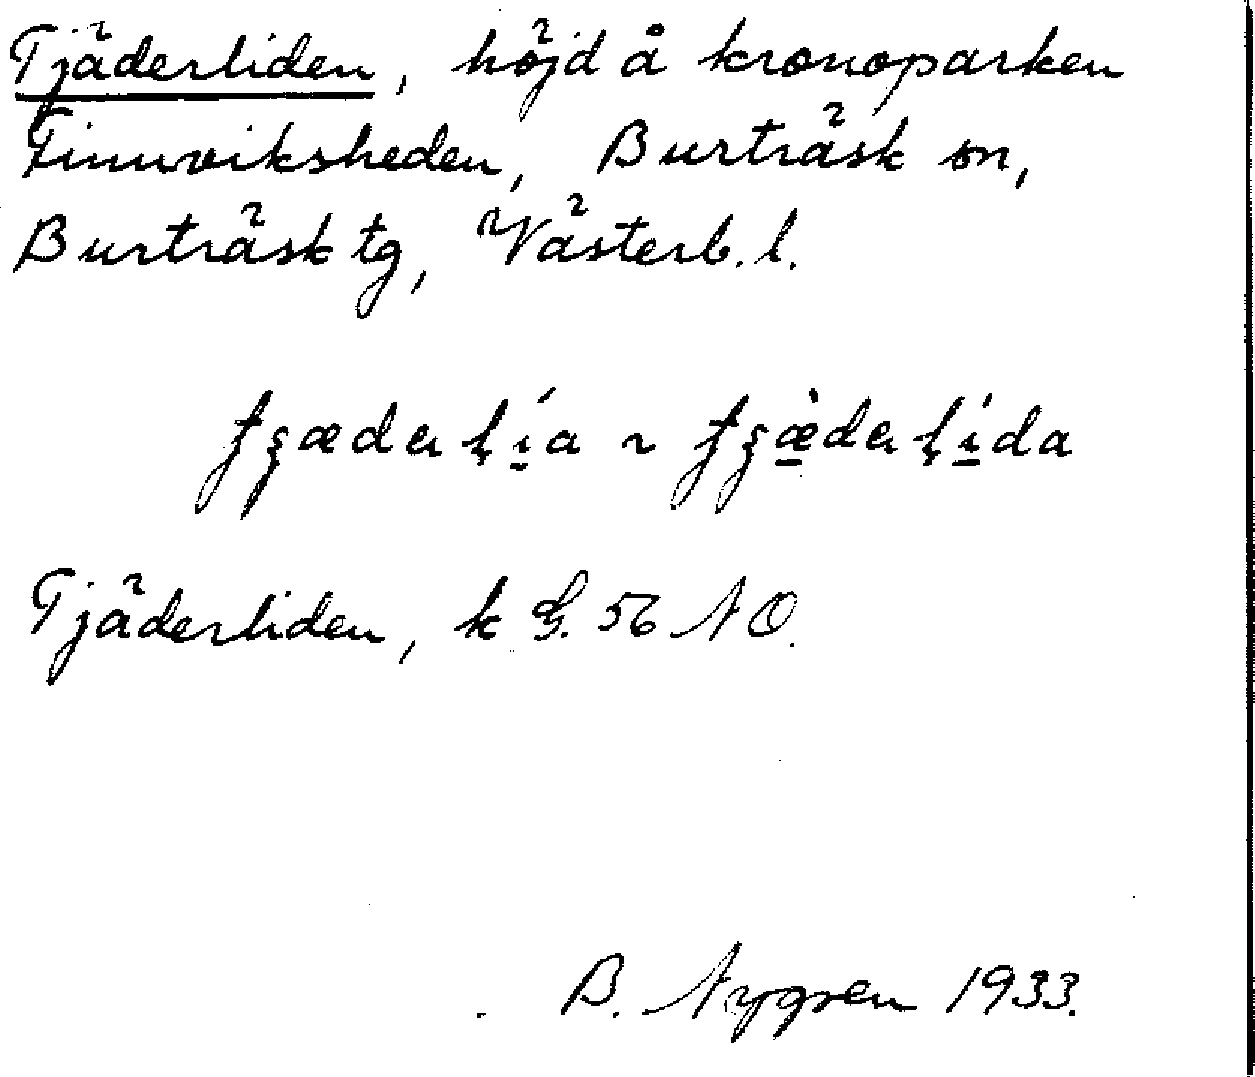 Tjäderliden, höjd å kronoparken
Finnviksheden, Burträsk sn,
Burträsk tg, Västerb. l.
Tjäderliden, k G. 56 NO.
B. Nygren 1933.